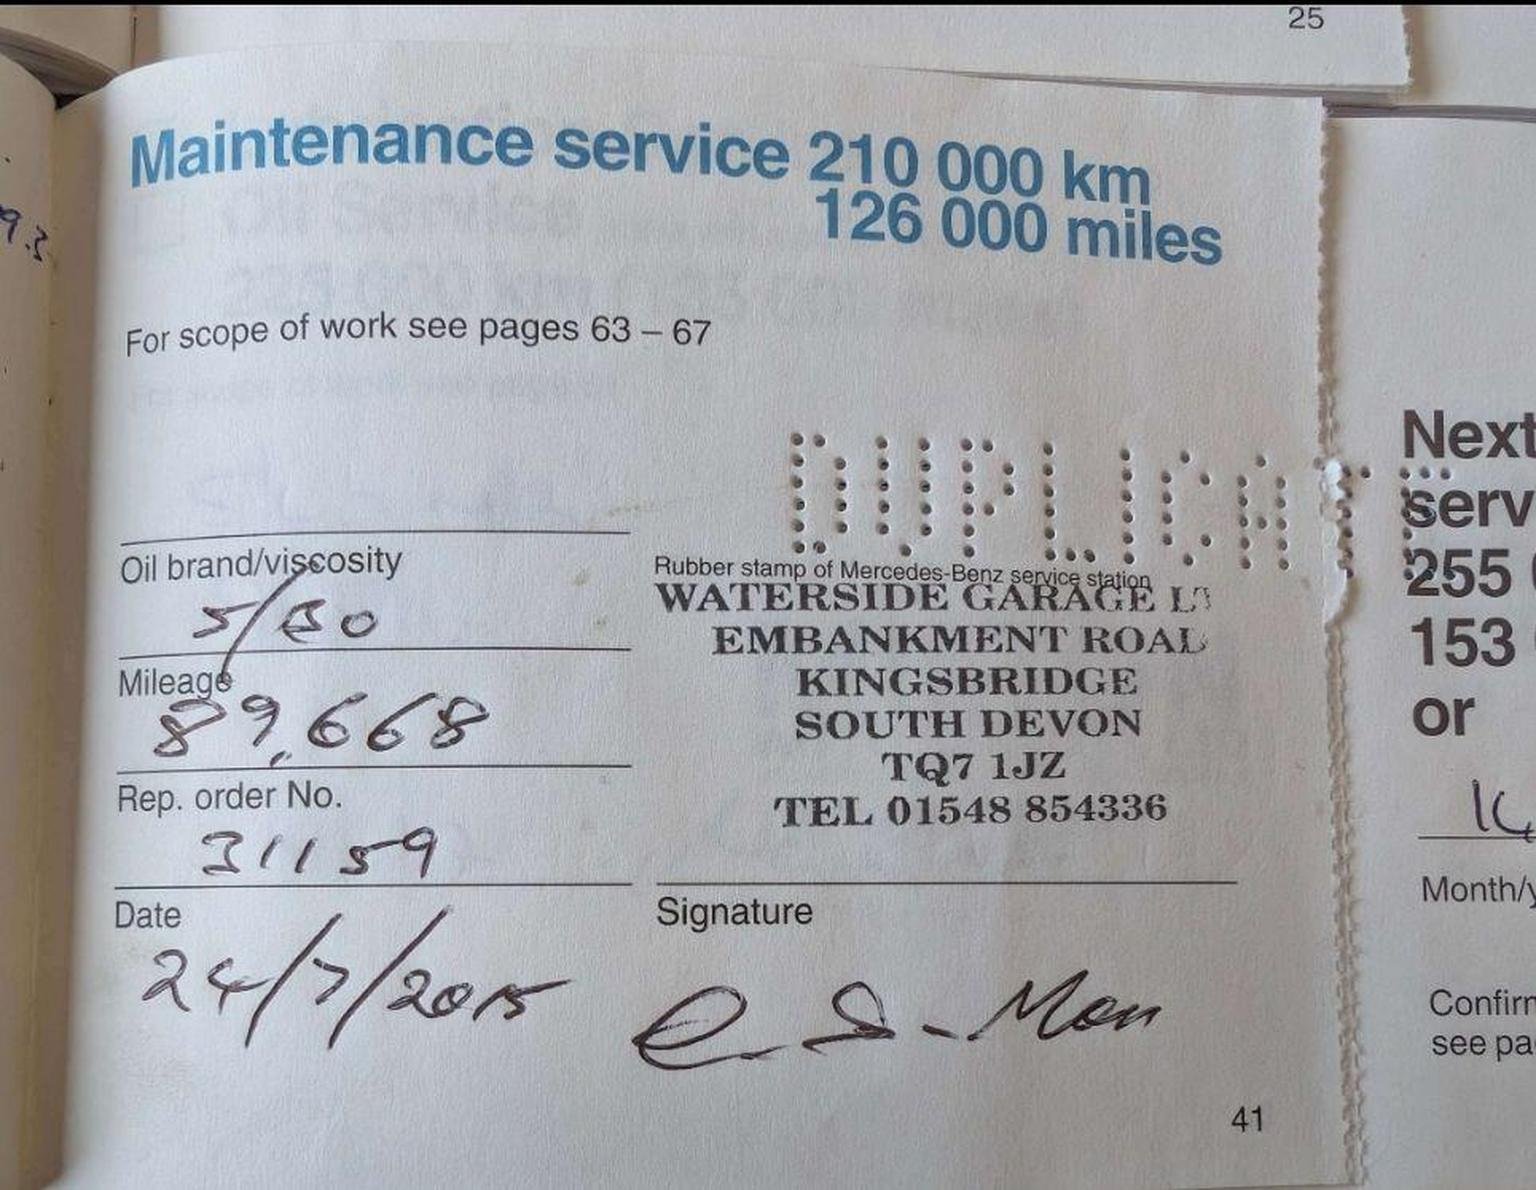 25
Maintenance service 210 000 km
126 000 miles
For scope of work see pages 63 – 67
DUPLICAT
Oil brand/viscosity
5/30
Rubber stamp of Mercedes-Benz service station
WATERSIDE GARAGE
EMBANKMENT ROAD
KINGSBRIDGE
SOUTH DEVON
TQ7 1JZ
TEL 01548 854336
Mileage
89,668
Rep. order No.
31159
Date
24/7/2015
Signature
41
9.3
Next
serv
255 0
153
or
Month/y
Confirm
see pa